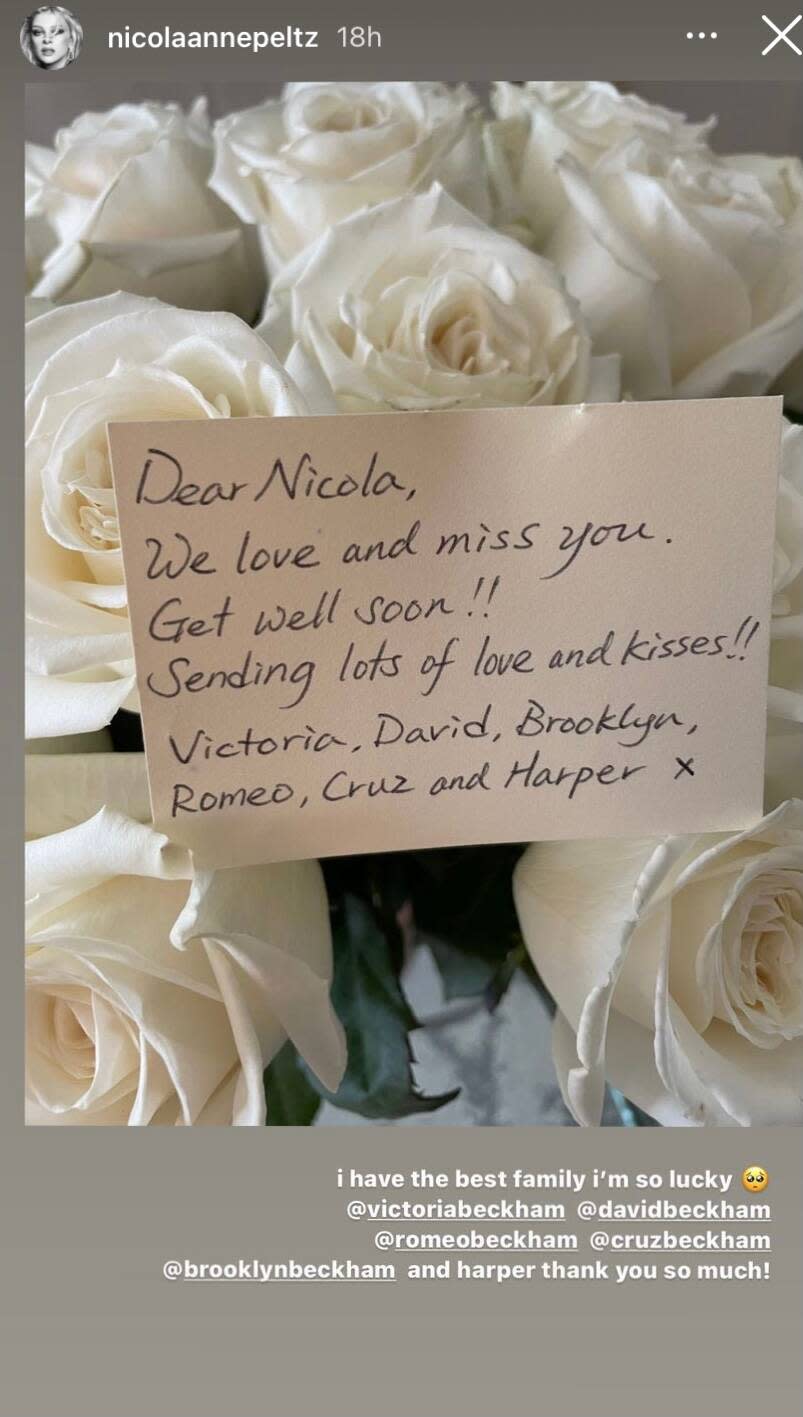 nicolaannepeltz 18h
Dear Nicola,
We love and miss you.
Get well soon!!
Sending lots of love and kisses!!
Victoria, David, Brooklyn,
Romeo, Cruz and Harper x
i have the best family i’m so lucky 🥺
@victoriabeckham @davidbeckham
@romeobeckham @cruzbeckham
@brooklynbeckham and harper thank you so much!